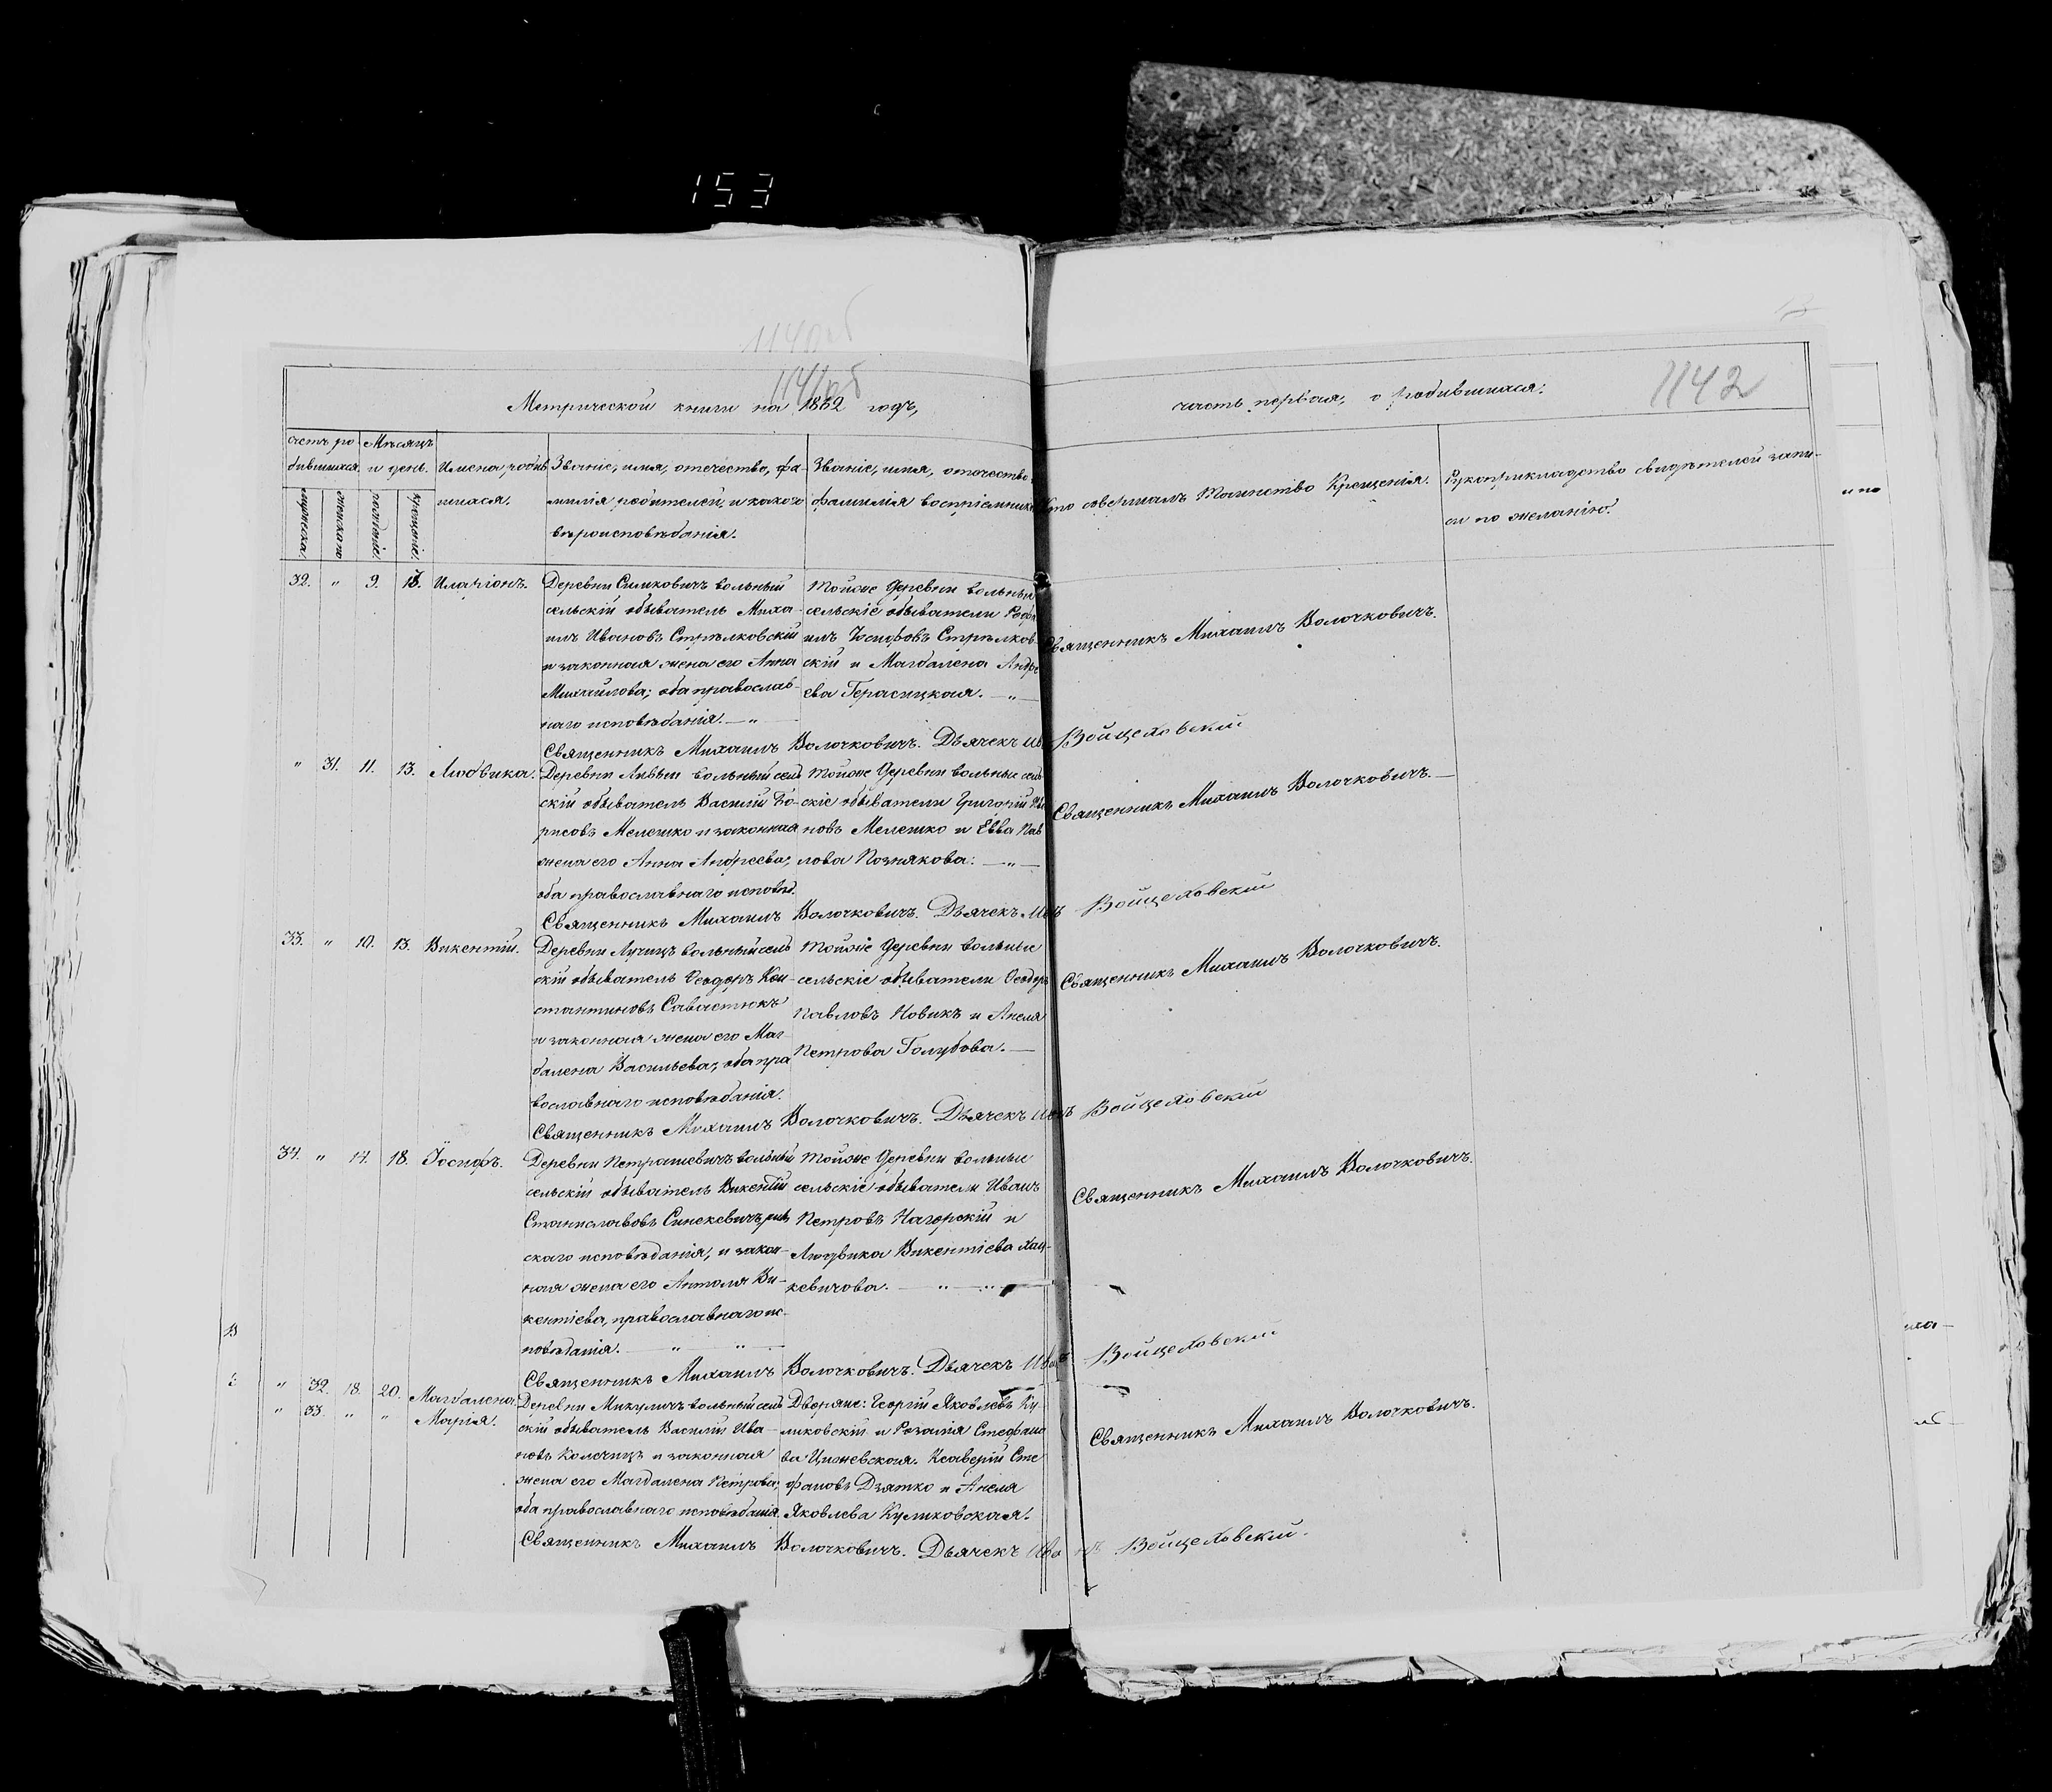 153
1142
Метрической книги на 1862 годъ,
часть первая, о родившихся:
Счетъ ро-
дившихся.
Мѣсяцъ
и день.
Имена родив
шихся.
Званіе, имя, отечество, фа-
милія родителей, и какого
вѣроисповѣданія.
Званіе, имя, отечество
фамилія воспріемник
Кто совершалъ Таинство Крещенія.
Рукоприкладство свидѣтелей запи-
си по желанію.
мужеска
женскаго
рожденіе.
крещеніе.
32. " 9. 13. Иларіонъ.
Деревни Симковичъ вольный
сельскій обыватель Миха-
илъ Ивановъ Стрѣлковскій
и законная жена его Анна
Михайлова; оба православ-
наго исповѣданія. — "
Тойже деревни вольные
сельскіе обыватели
илъ Іосифовъ Стрѣлков-
скій и Магдалена Андре
ева Герасицкая. — " —
Священникъ Михаилъ Волочковичъ.
Священникъ Михаилъ Волочковичъ. Дьячекъ Ив Войцеховскій
" 31. 11. 13. Людвика.
Деревни вольный сель
скій обыватель Василій Бо-
рисовъ Мелешко и законная
жена его Анна Андреева;
оба православнаго исповѣд.
Тойже деревни вольные сель
скіе обыватели Григорій Ива
новъ Мелешко и Евва Пав
лова Познякова: — " —
Священникъ Михаилъ Волочковичъ. —
Священникъ Михаилъ Волочковичъ. Дьячекъ Ивъ Войцеховскій
33. " 10. 13. Викентій.
Деревни Лучицъ вольный сель
скій обыватель Ѳеодоръ Кон-
стантиновъ Савастюкъ
и законная жена его Маг-
далена Васильева; оба пра
вославнаго исповѣданія.
Тойже деревни вольные
сельскіе обыватели Ѳеодоръ
Павловъ Новикъ и Анеля
Петрова Голубова. —
Священникъ Михаилъ Волочковичъ.
Священникъ Михаилъ Волочковичъ. Дьячекъ Иванъ Войцеховскій
34. " 17. 18. Іосифъ.
Деревни Петрашевичъ вольный
сельскій обыватель Викентій
Станиславовъ Синкевичъ, рим
скаго исповѣданія, и закон-
ная жена его Антоля Ви-
кентіева, православнаго ис-
повѣданія. — " — " —
Тойже деревни вольные
сельскіе обыватели Иванъ
Петровъ Нагорскій и
Людвика Викентіева Хац-
кевичова. — " — "
Священникъ Михаилъ Волочковичъ.
Священникъ Михаилъ Волочковичъ. Дьячекъ Иванъ Войцеховскій
" 32. 18. 20. Магдалена.
" 33. " " Марія.
Деревни Микуличъ вольный сель
скій обыватель Василій Ива-
новъ Колечицъ и законная
жена его Магдалена Петрова;
оба православнаго исповѣданія.
Дворяне: Георгій Яковлевъ Ку-
ликовскій и Розалія Стефано
ва Ционевская. Ксаверій Сте
фановъ Дзятко и Анеля
Яковлева Куликовская.
Священникъ Михаилъ Волочковичъ.
Священникъ Михаилъ Волочковичъ. Дьячекъ Иванъ Войцеховскій.